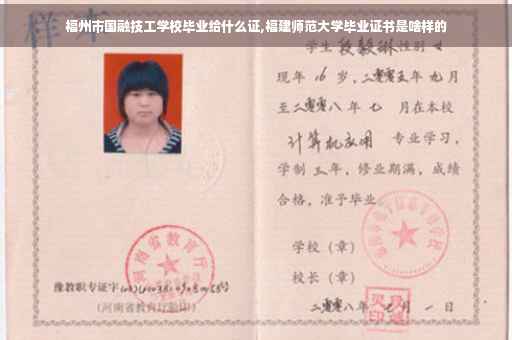 福州市国融技工学校毕业给什么证,福建师范大学毕业证书是啥样的
学生 性别 女
现年 16 岁,二零零五年 九月
至二零零八年 七 月在本校
计算机应用 专业学习,
学制 三年,修业期满,成绩
合格,准予毕业
学校（章）
校长（章）
二零零八年 七 月 一 日
河南省教育厅
豫教职专证字
(河南省教育厅验印)